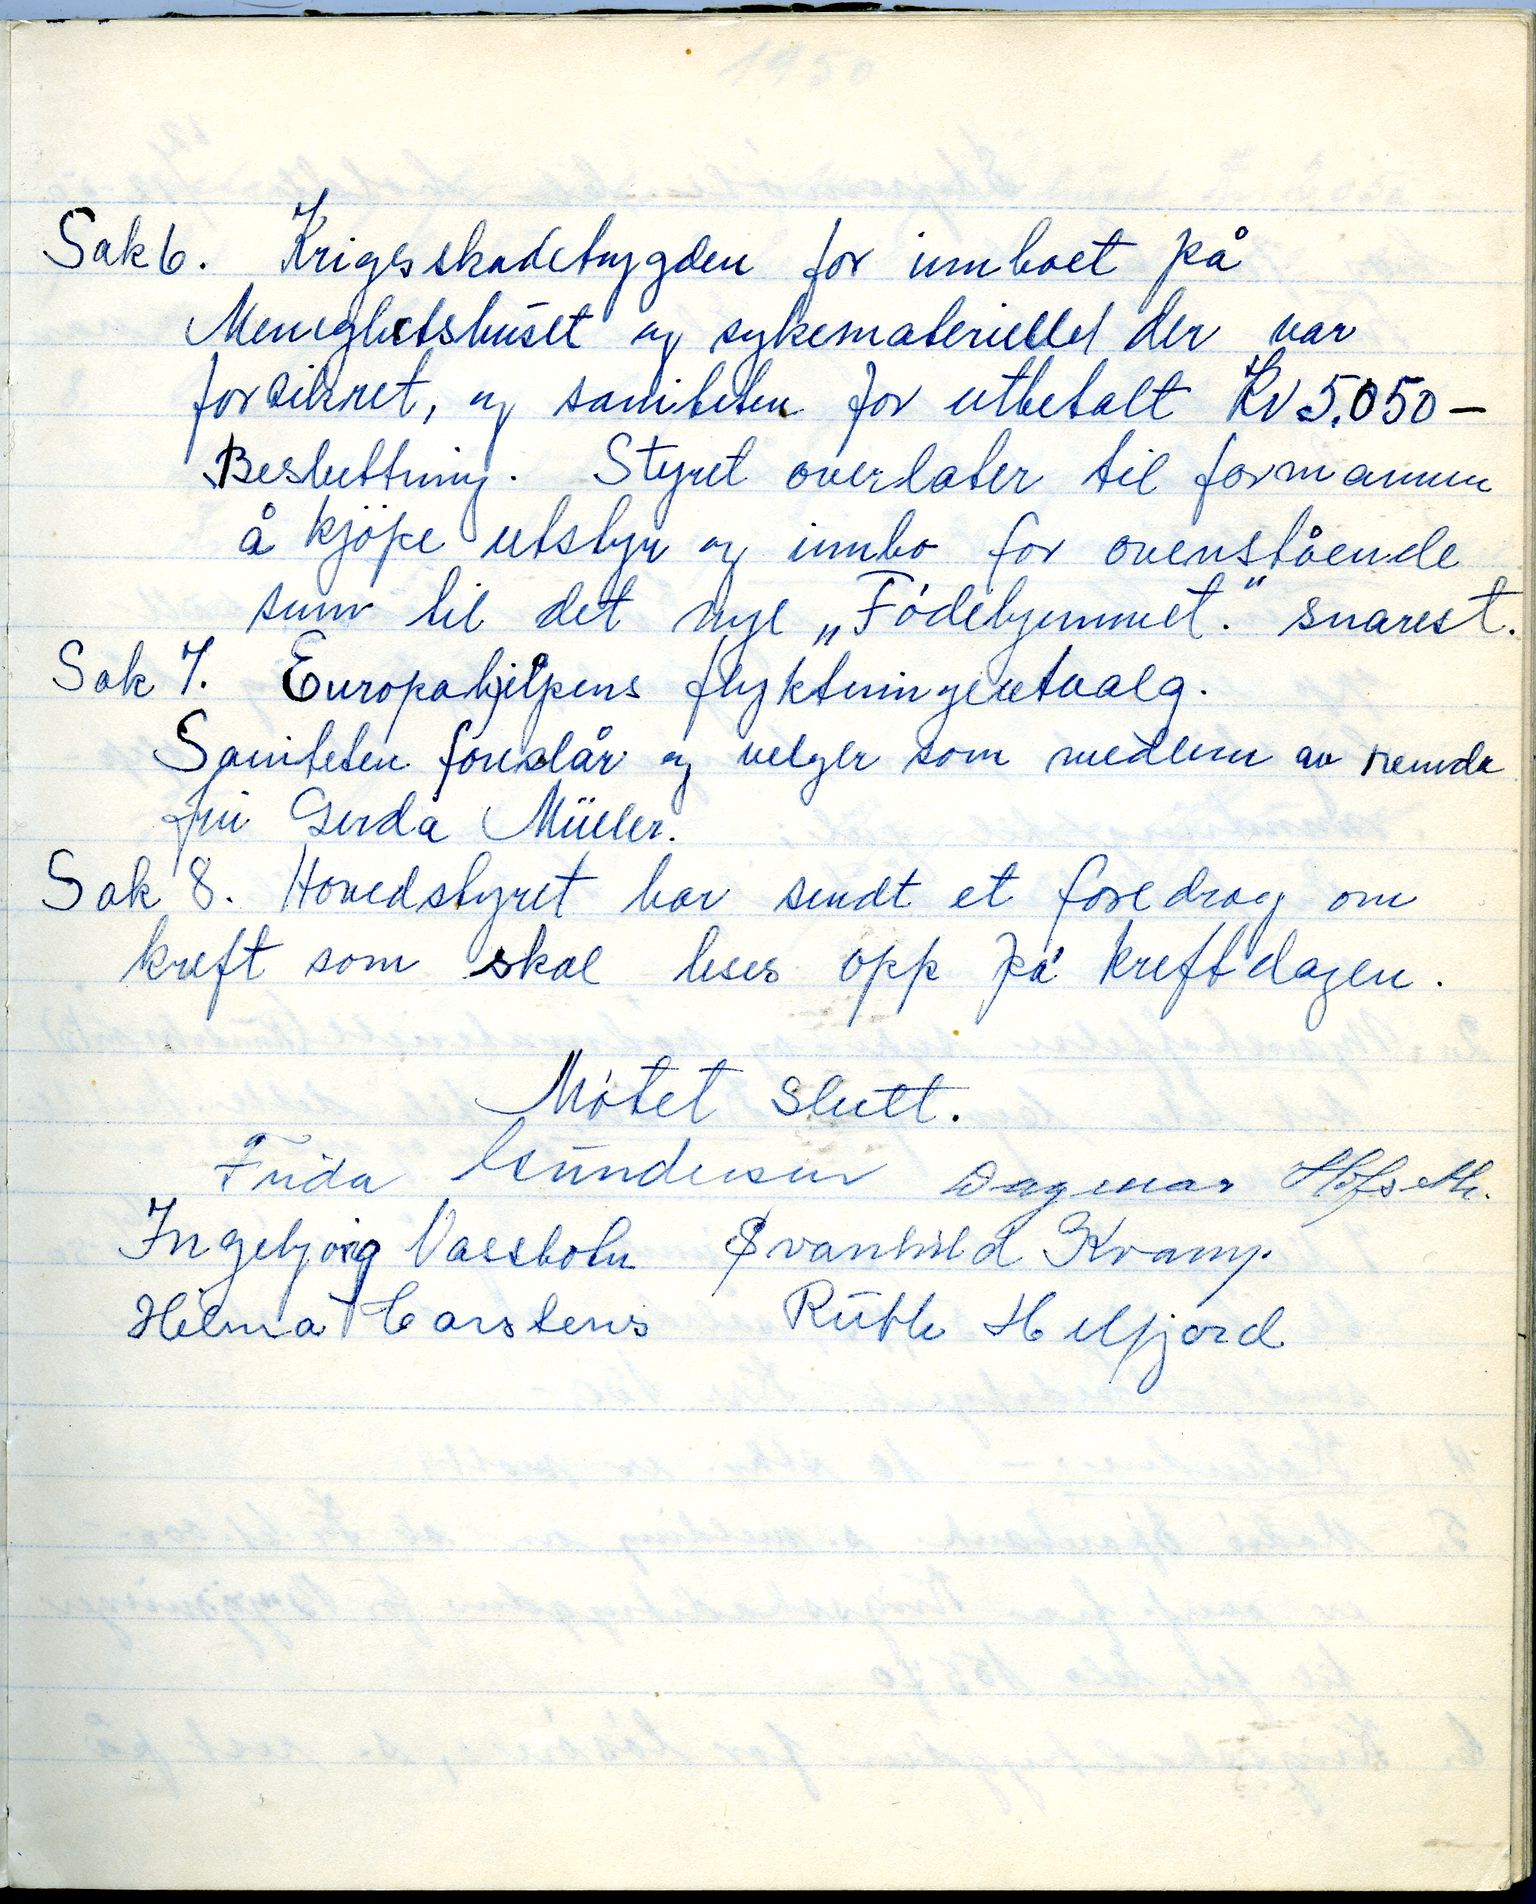 Sak 6. Krigsskadetrygden for innboet på
Menighetshuset og sykemateriellet der var
forsikret, og saniteten for utbetalt Kr 5.050 —
Besluttning. Styret overlater til formannen
å kjöpe utstyr og innbo for ovenstående
sum til det nye „Födehjemmet." snarest.
Sak 7. Europahjelpens flyktningeutvalg.
Saniteten foreslår og velger som medlem av nemda
fru Gerda Müller.
Sak 8. Hovedstyret har sendt et foredrag om
kreft som skal leses opp på kreftdagen.
Mötet slutt.
Frida Gundersen Dagmar Hofseth.
Ingebjørg Vassbotn Svanhild Kvamp.
Hilma Carstens Ruth Helfjord